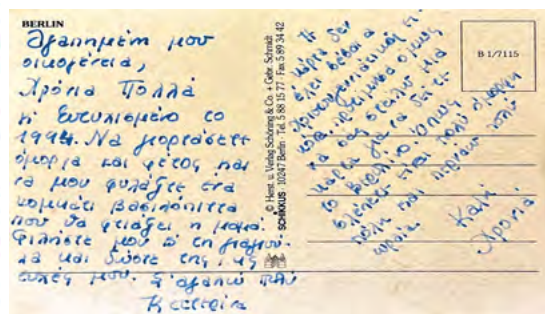 BERLIN
Αγαπημένη μου
οικογένεια,
Χρόνια Πολλά
κι ευτυχισμένο το
1994. Να γιορτάσετε
όμορφα και φέτος και
να μου φυλάξτε ένα
κομμάτι βασιλόπιττα
που θα φτιάξει η μαμά.
Φιλήστε μου τη γιαγιού-
λα και δώστε της τις
ευχές μου. Σ'αγαπώ πολύ
Κατερίνα
© Herst. u. Verlag Schöning & Co + Gebr. Schmidt
SCHIKKUS · 10247 Berlin · Tel. 5 88 15 77 · Fax 5 89 34 42
B 1/7115
Η
κάρτα δεν
έχει βέβαια
χριστουγεννιάτικη ει-
κόνα, προτίμησα όμως
να σας στείλω μια
κάρτα για να δείτε
το Βερολίνο. Όπως
βλέπετε είναι πολύ όμορφη
πόλη και περνάω πολύ
ωραία. Καλή
Χρονιά.